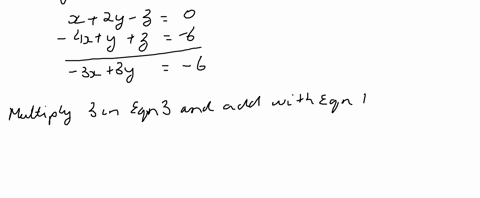 x + 2y - z = 0
- 4x + y + z = -6
- 3x + 3y = -6
Multiply 3 in Eqn 3 and add with Eqn 1